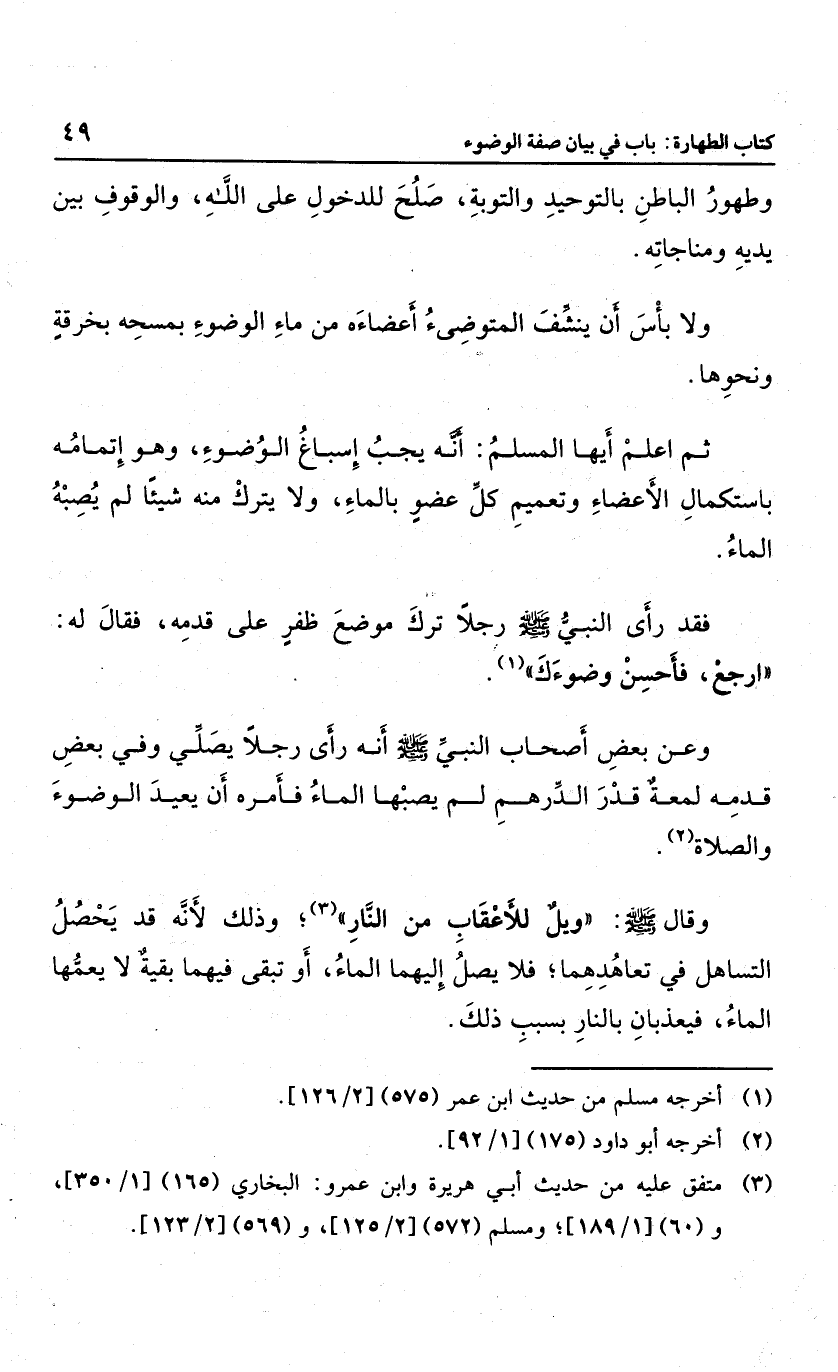 كتاب الطهارة: باب في بيان صفة الوضوء ٤٩
وطهورُ الباطنِ بالتوحيدِ والتوبةِ، صَلُحَ للدخولِ على اللَّهِ، والوقوفِ بين
يديهِ ومناجاتِه.
ولا بأْسَ أَن ينشِّفَ المتوضِىءُ أَعضاءَه من ماءِ الوضوءِ بمسحِه بخرقةٍ
ونحوِها.
ثم اعلمْ أَيها المسلمُ: أَنَّه يجبُ إِسباغُ الوُضوءِ، وهو إِتمامُه
باستكمالِ الأَعضاءِ وتعميمِ كلِّ عضوٍ بالماءِ، ولا يتركْ منه شيئًا لم يُصِبْهُ
الماءُ.
فقد رأَى النبيُّ ﷺ رجلاً تركَ موضعَ ظفرٍ على قدمِه، فقالَ له:
«ارجعْ، فأَحسِنْ وضوءَكَ»(١).
وعن بعضِ أَصحاب النبيِّ ﷺ أَنه رأَى رجلاً يصَلِّي وفي بعضِ
قدمِه لمعةٌ قدْرَ الدِّرهمِ لم يصبْها الماءُ فأَمره أَن يعيدَ الوضوءَ
والصلاة(٢).
وقال ﷺ: «ويلٌ للأَعْقَابِ من النَّارِ»(٣)؛ وذلك لأَنَّه قد يَحْصُلُ
التساهل في تعاهُدِهِما؛ فلا يصلُ إِليهما الماءُ، أَو تبقى فيهما بقيةٌ لا يعمُّها
الماءُ، فيعذبانِ بالنارِ بسببِ ذلكَ.
(١) أخرجه مسلم من حديث ابن عمر (٥٧٥) [١٢٦/٢].
(٢) أخرجه أبو داود (١٧٥) [٩٢/١].
(٣) متفق عليه من حديث أبي هريرة وابن عمرو: البخاري (١٦٥) [٣٥٠/١]،
و (٦٠) [١٨٩/١]؛ ومسلم (٥٧٢) [١٢٥/٢]، و (٥٦٩) [١٢٣/٢].